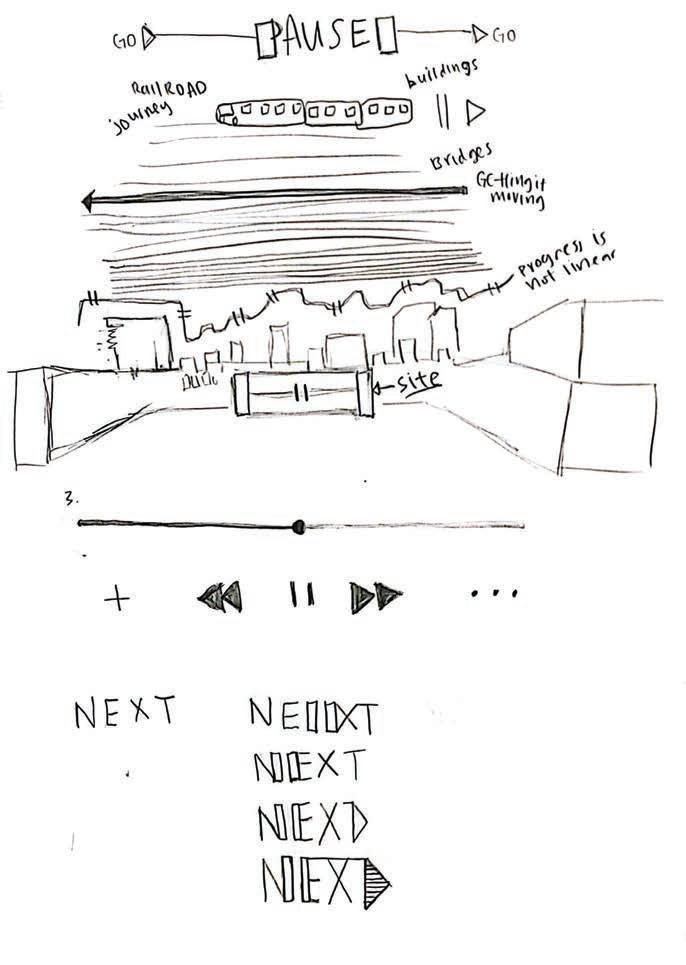 GO PAUSE GO
RAILROAD
journey
buildings
Bridges
moving
progress is
not linear
site
3.
NEXT NEXT
NEXT
NEX
NEX